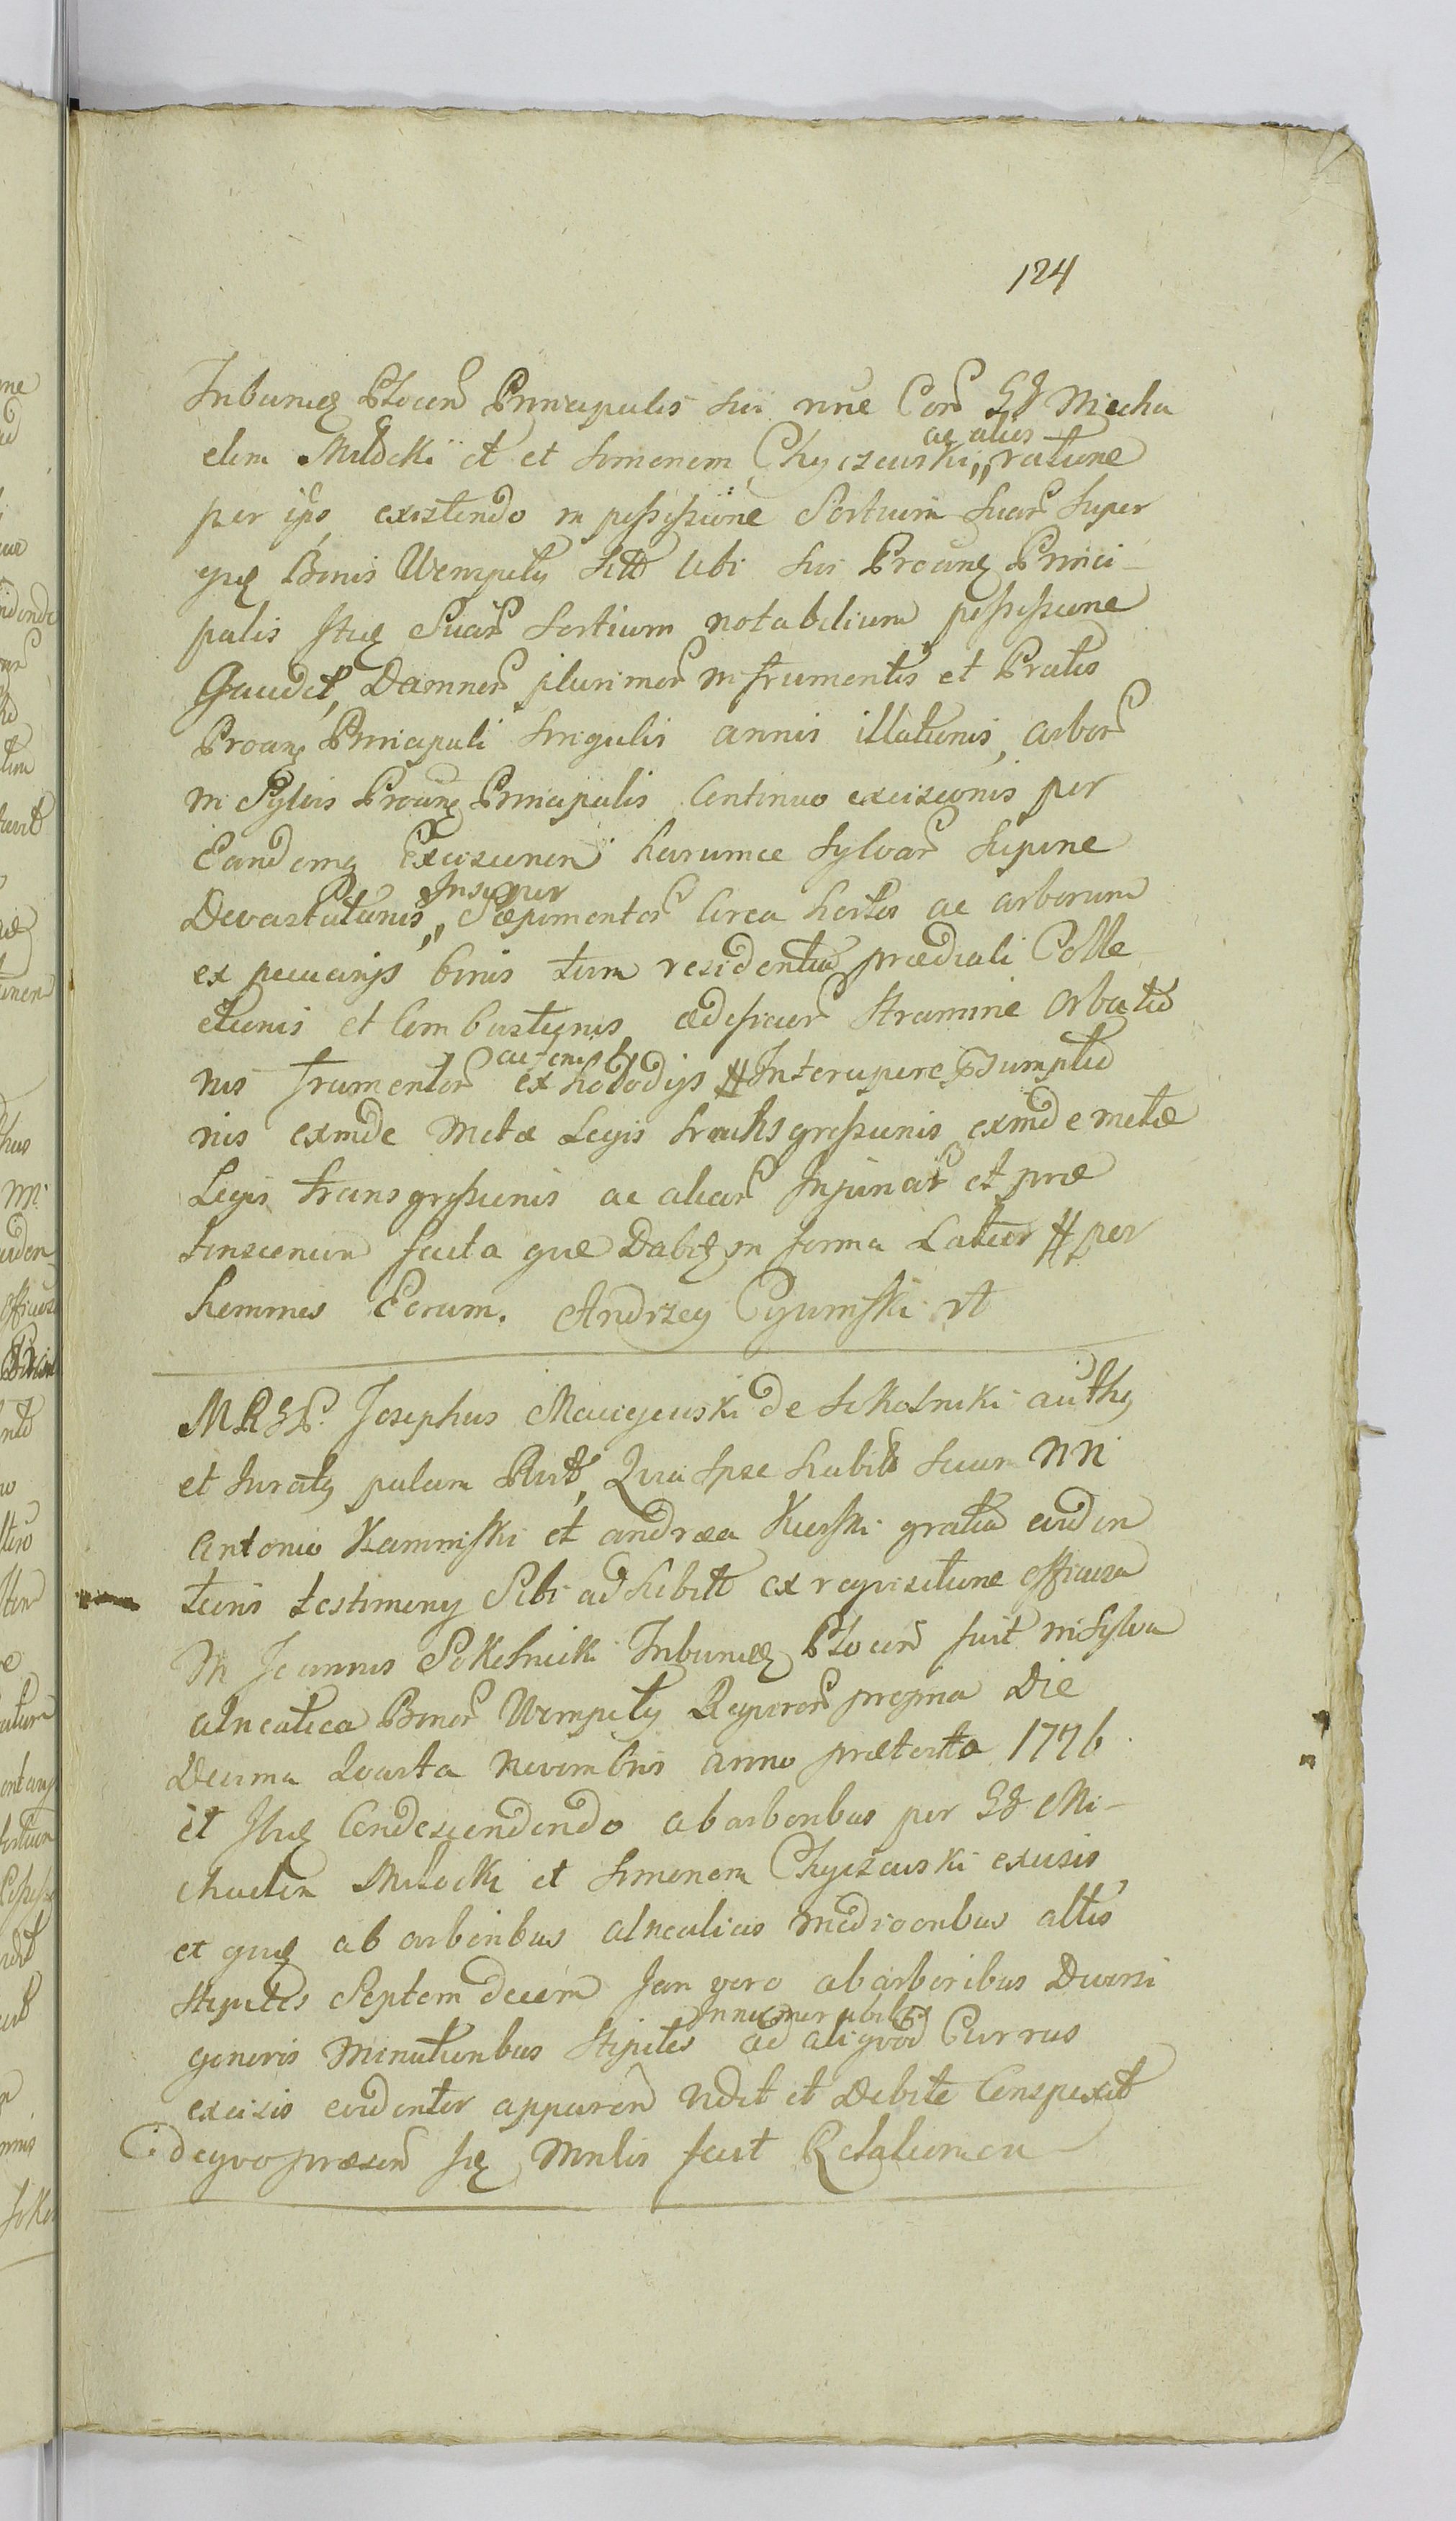 124
Tribuniq Plocen Principalis sui nne Con GG Micha
elem Miłocki et et Simonem Chyczewski,, ac alios ratione
per ips existendo in possessione Sortium suar super
que Bonis Wempiły sitt Ubi sui Proanq Princi-
palis Ituq Suar Sortium notabilium possessione
Gaudet, Damnor plurimor in frumentis et Pratis
Proanq Principali singulis annis illationis, arbor
in Sylvis Proanq Principalis Continuo excisionis per
Eandemq Excisionem harumce Sylvar supine
Devastationis,, Insuper Sæpimentor Circa hortos ac arborum
ex pecuarijs binis tum residentia prædiali Colle
ctionis et Combustionis ædificior Stramine Orbatio
nis frumentor ex
nis exinde Metæ Legis transgressionis exinde metæ
Legis transgressionis ac aliar Injuriar et præ
tensionum facta que Dabit in forma Latior # per
homines Eorum. Andrzey Cyumski vt
MRGP. Josephus Maciejewski de Sokolniki auth
et Juratq palam Rvit, Quia Ipse habitis secum NN
Antonio Kaminski et Andrea Kuski gratia eviden
tioris testimony Sibi adhibitt ex reqvisitione officiosa
M Joannis Sokolnicki Tribuniq Plocen fuit in Sylva
alneatica Bonor Wempiły Regiror progina Die
Decima Quarta Novembris anno præterito 1776
et Ibiq Condescendendo ab arboribus per GG Mi-
chaelem Miłocki et Simonem Chyczewski excisis
et quiq ab arboribus alnealicis mediocribus altis
stipites Septemdecem Jan vero ab arboribus Diversi
generis Minutioribus Stipites Innumerabiles ad aliqvod Currus
excisis evidenter apparen vidit et Debite Conspexit
deqvo præsen suq Mnlis fecit Relationem